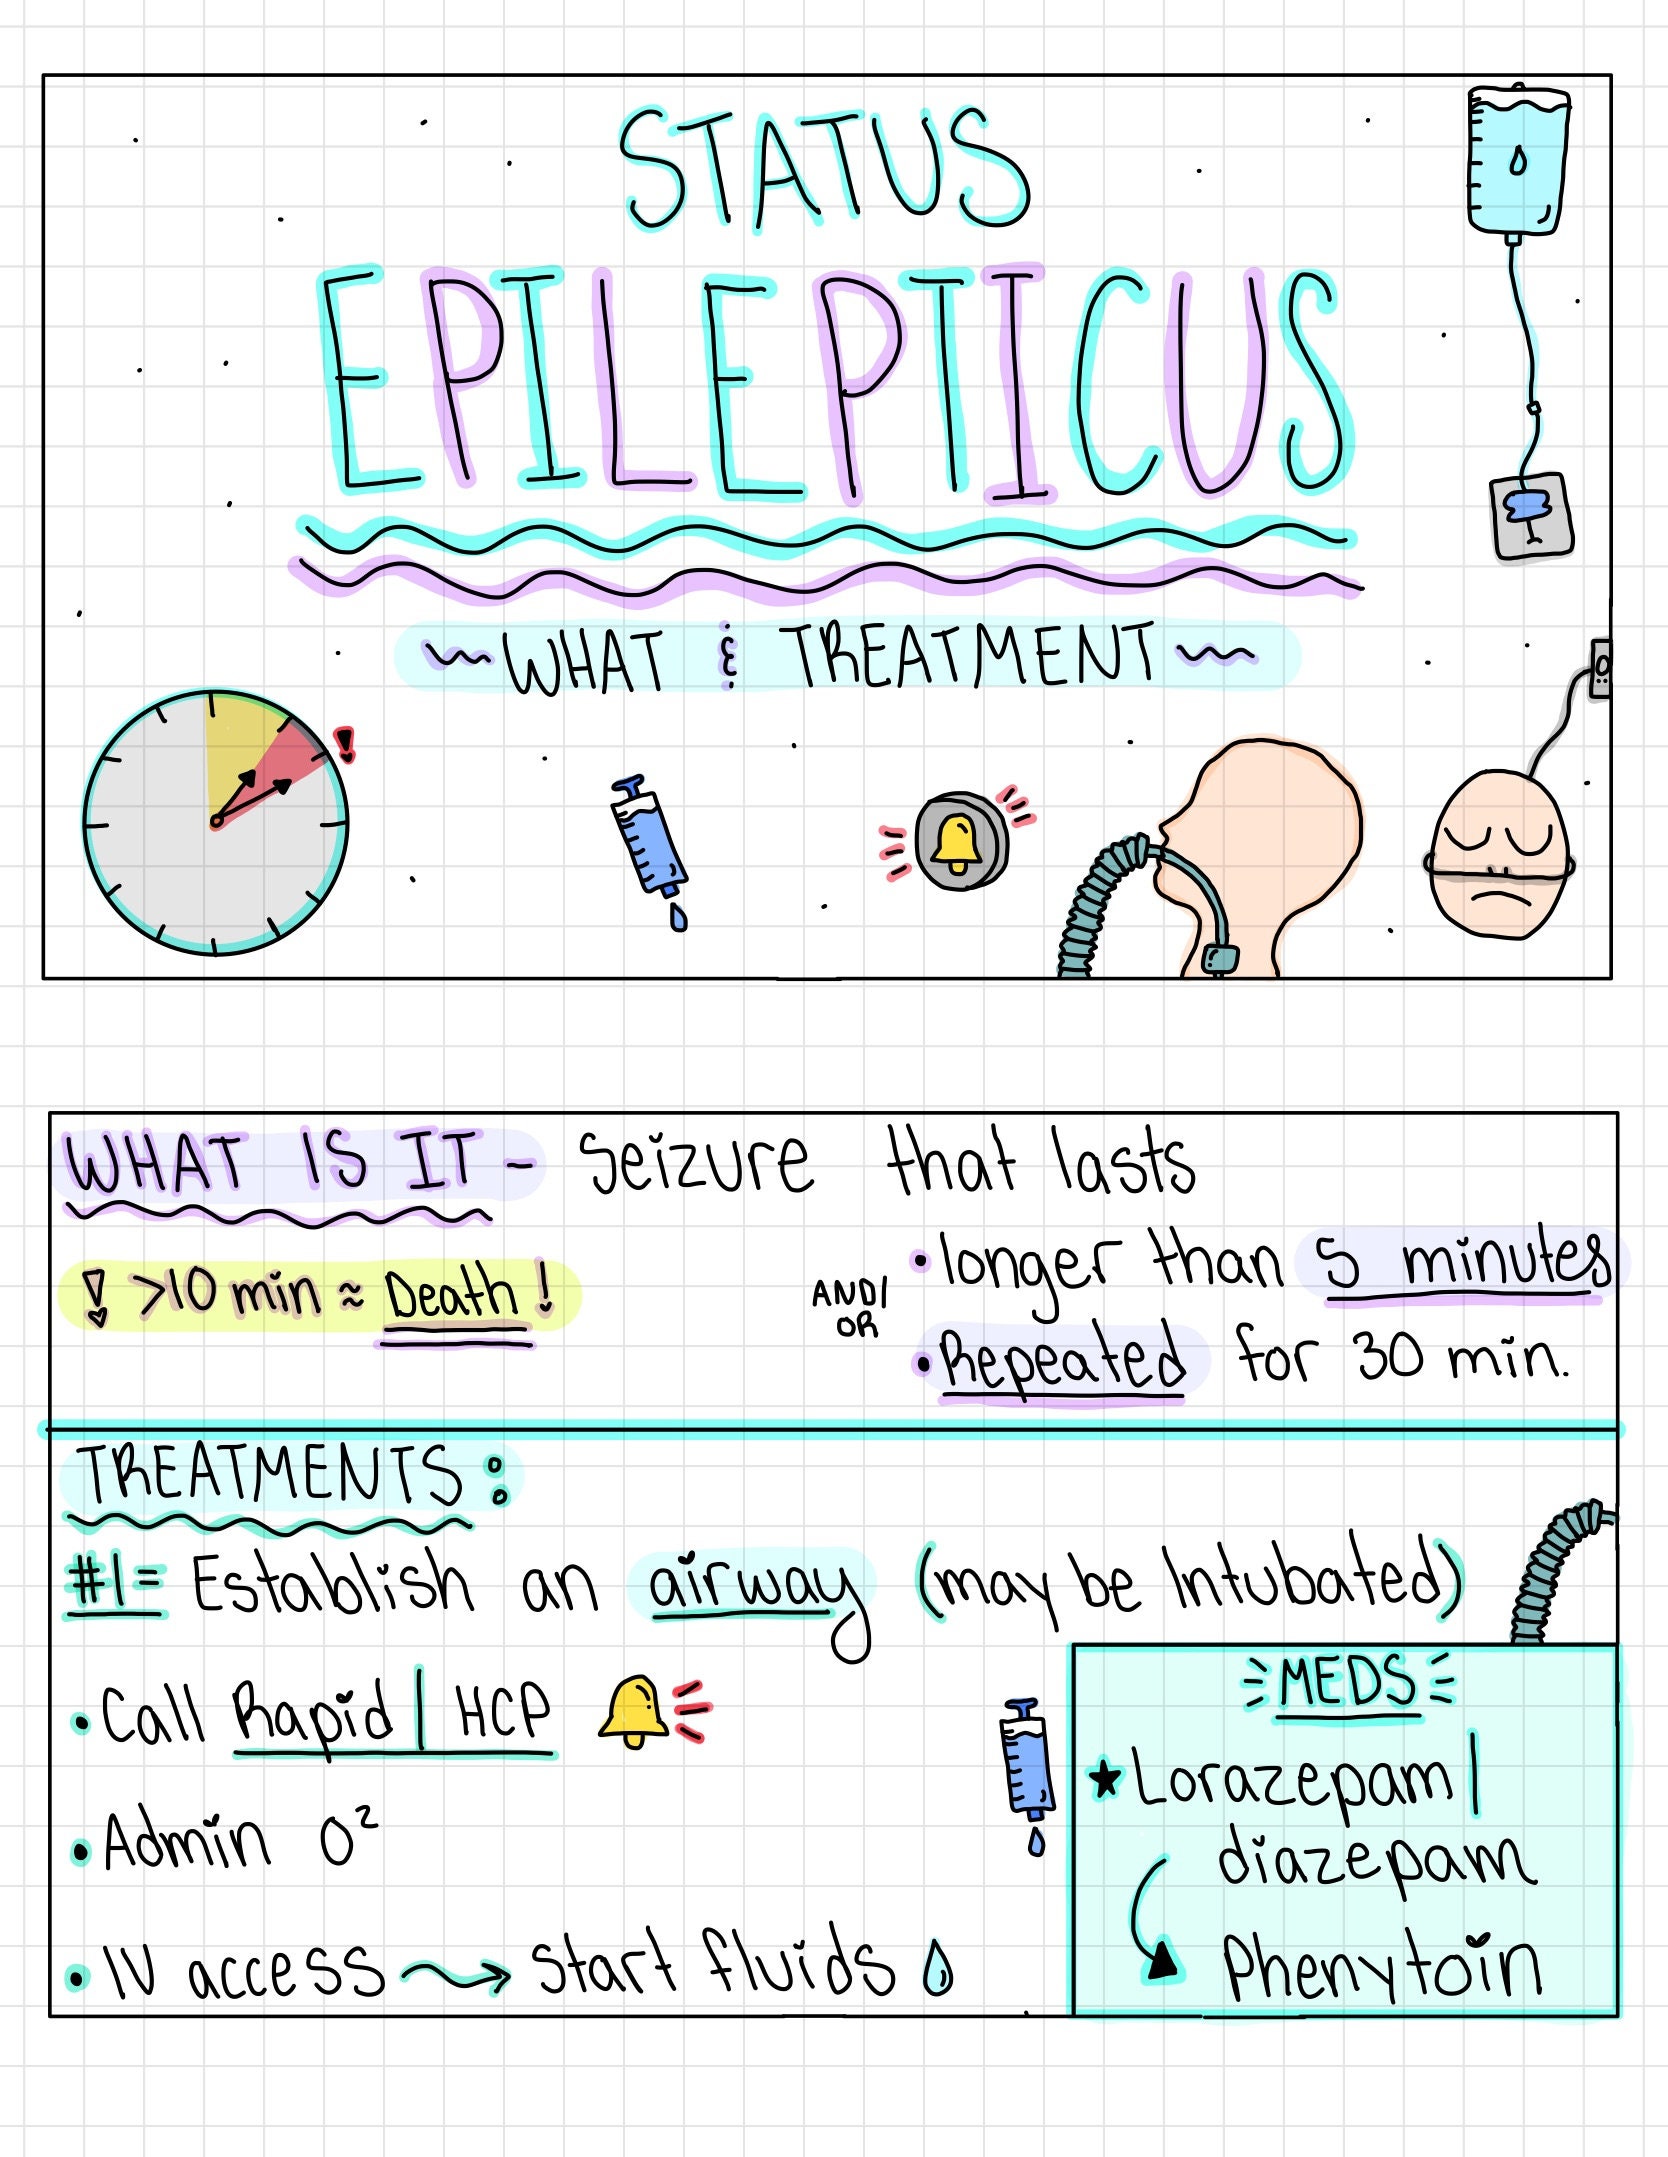 STATUS
EPILEPTICUS
~WHAT & TREATMENT~
!
WHAT IS IT - Seizure that lasts
• longer than 5 minutes
! >10 min ≈ Death!
AND/
OR
• Repeated for 30 min.
TREATMENTS:
#1= Establish an airway (may be Intubated)
• Call Rapid | HCP
• Admin O²
• IV access → Start fluids
MEDS
★ Lorazepam |
diazepam
Phenytoin